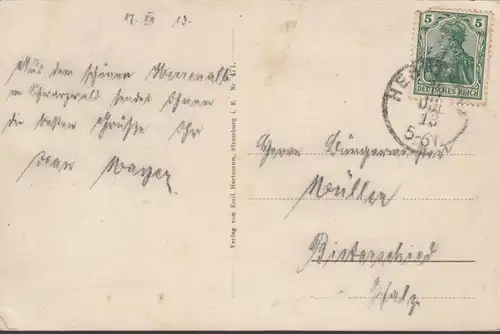 17. VII 13.
Aus dem schönen Herrenalb
im Schwarzwald sendet Ihnen
die besten Grüße Ihr
Mayer
Verlag von Emil Hartmann, Strassburg i. E. Nr. 471.
5 5
DEUTSCHES REICH
HE
JUL
13
5-6
Herrn Bürgermeister
Müller
Bisterschied
Pfalz